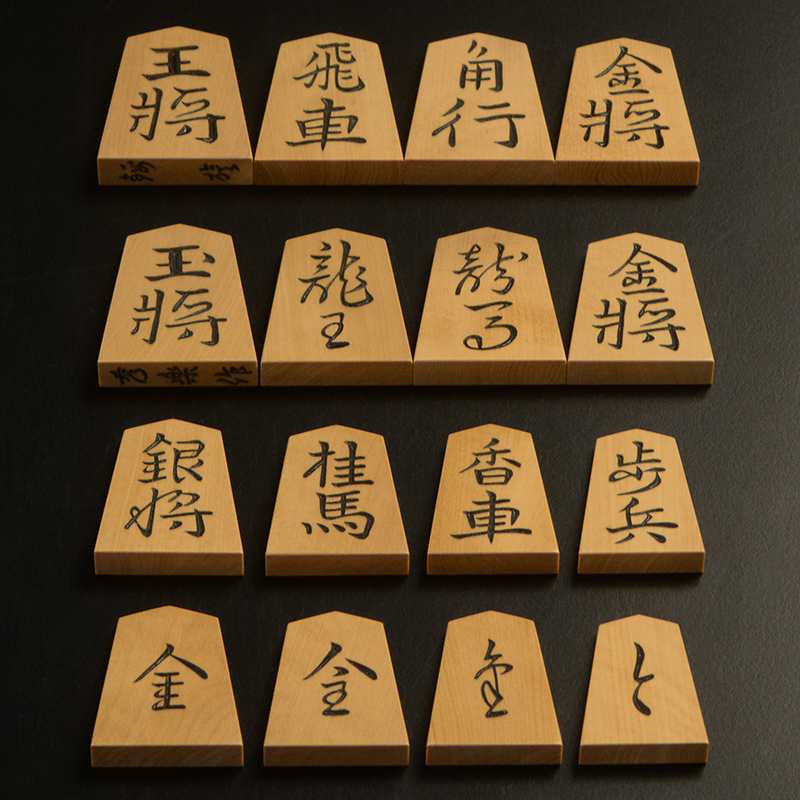 王將
飛車
角行
金將
錦旗
玉將
龍王
龍馬
金將
秀樂作
銀将
桂馬
香車
歩兵
全
と